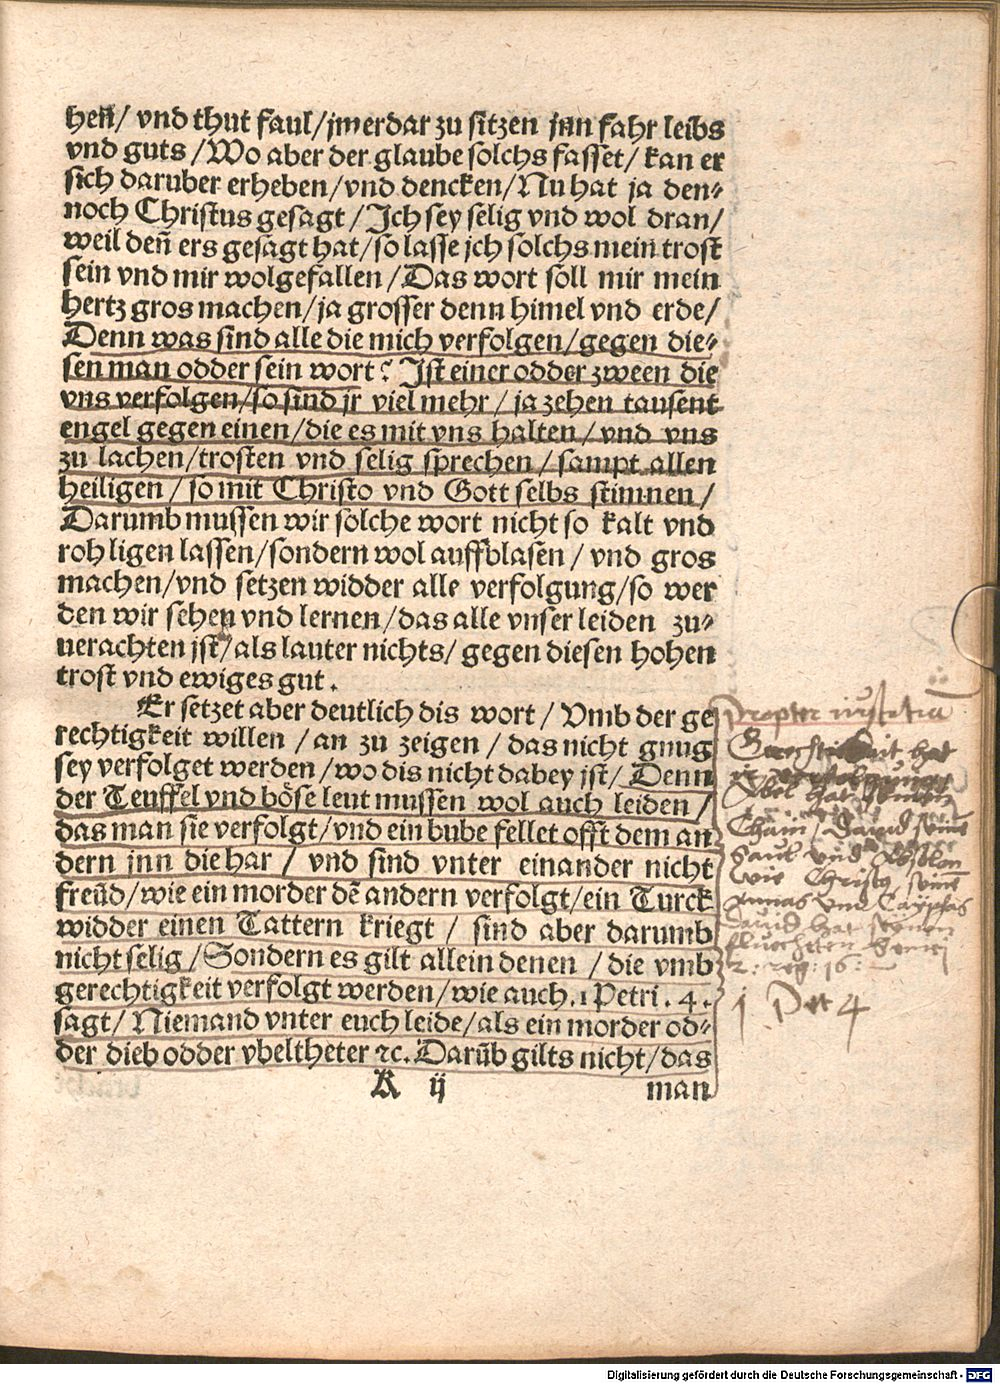 heñ/ vnd thut faul/jmerdar zu sitzen jnn fahr leibs
vnd guts/Wo aber der glaube solchs fasset/kan er
sich daruber erheben/vnd dencken/Nu hat ja den⸗
noch Christus gesagt/Jch sey selig vnd wol dran/
weil deñ ers gesagt hat/so lasse jch solchs mein trost
sein vnd mir wolgefallen/Das wort soll mir mein
hertz gros machen/ja grosser denn himel vnd erde/
Denn was sind alle die mich verfolgen/gegen die⸗
sen man odder sein wort? Jst einer odder zween die
vns verfolgen/so sind jr viel mehr/ja zehen tausent
engel gegen einen/die es mit vns halten/vnd vns
zu lachen/trosten vnd selig sprechen/sampt allen
heiligen/so mit Christo vnd Gott selbs stimnen/
Darumb mussen wir solche wort nicht so kalt vnd
roh ligen lassen/sondern wol auffblasen/vnd gros
machen/vnd setzen widder alle verfolgung/so wer
den wir sehen vnd lernen/das alle vnser leiden zu⸗
uerachten jst/als lauter nichts/gegen diesen hohen
trost vnd ewiges gut.
Er setzet aber deutlich dis wort/Vmb der ge
rechtigkeit willen/an zu zeigen/das nicht gnug
sey verfolget werden/wo dis nicht dabey jst/Denn
der Teuffel vnd böse leut mussen wol auch leiden/
das man sie verfolgt/vnd ein bube fellet offt dem an
dern jnn die har/vnd sind vnter einander nicht
freũd/wie ein morder dẽ andern verfolgt/ein Turck
widder einen Tattern kriegt/sind aber darumb
nicht selig/Sondern es gilt allein denen/die vmb
gerechtigkeit verfolgt werden/wie auch.1 Petri.4.
sagt/Niemand vnter euch leide/als ein morder od⸗
der dieb odder vbeltheter ꝛc. Darũb gilts nicht/das
K ij man
Propter
hat
Abel hat seinen
Chain/ Dauid seine
Saul vnd Absolon
wie Christus seine
Annas vnd Cayphas
Dauid hat seinen
2. reg: 16:
1. Pet 4
Digitalisierung gefördert durch die Deutsche Forschungsgemeinschaft - DFG